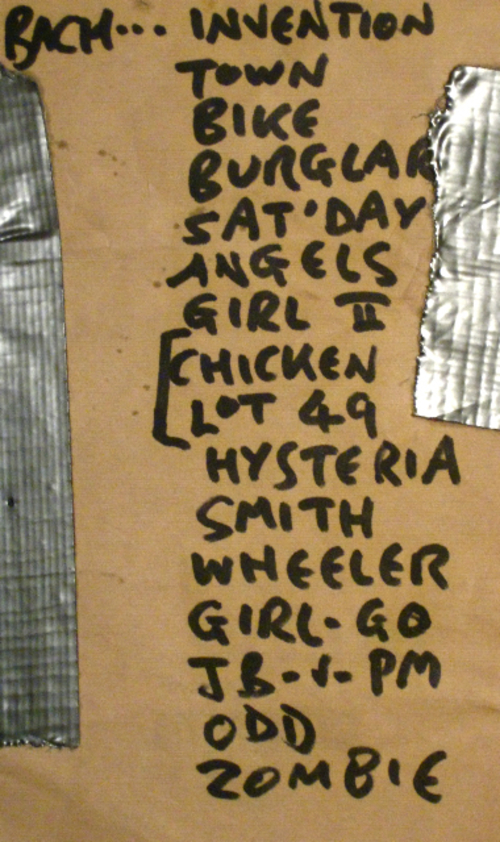 BACH... INVENTION
TOWN
BIKE
BURGLAR
SAT'DAY
ANGELS
GIRL II
[CHICKEN
LOT 49
HYSTERIA
SMITH
WHEELER
GIRL-GO
JB-V-PM
ODD
ZOMBIE